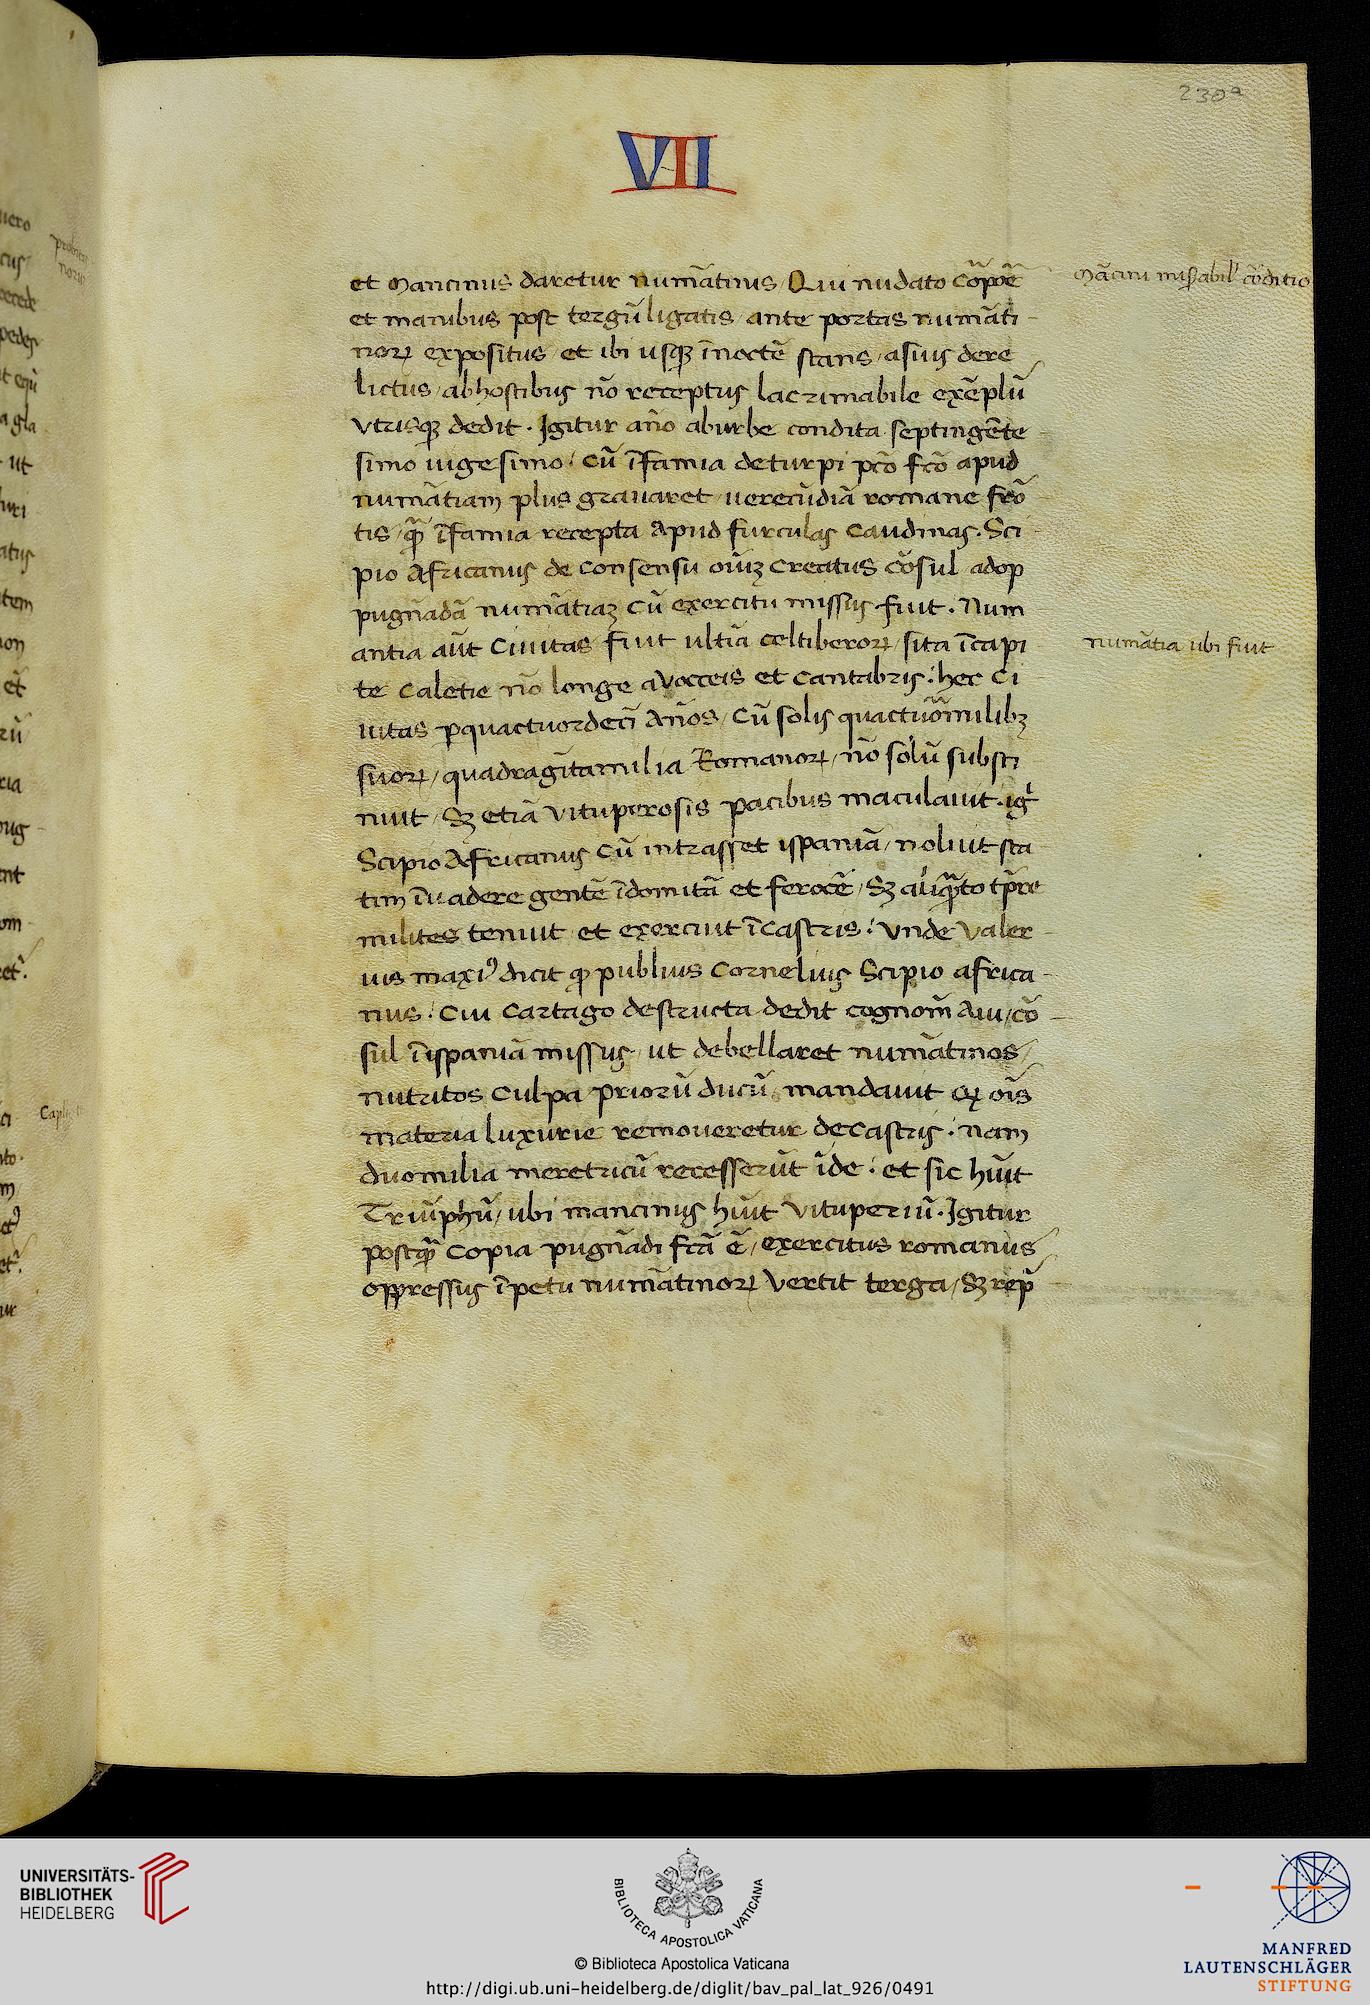 230ᵃ
VII
et Mancinus daretur numātinis / Qui nudato cōpoē
et manibus post tergū ligatis / ante portas numāti
noꝝ expositus / et ibi usqꝫ īnoctē stans / asuis dere
lictus / abhostibus nō receptus lacrimabile exēplū
vtrisqꝫ dedit . Igitur año aburbe condita septingēte
simo uigesimo / cū īfamia deturpi pcō fcō apud
numātiam plus grauaret / uerecūdiā romane frō
tis / qꝫ̄ īfamia recepta Apud furculas Caudinas . Sci
pio Africanus de Consensu oīuꝫ Creatus cōsul adop
pugnādā numātiaꝫ cū exercitu missus fuit . Num
antia aūt Ciuitas fuit ultīa celtiberoꝝ / sita īcapi
te Caletie nō longe aVocceis et Cantabris : hec Ci
uitas ꝑquactuordecī Años / Cū solis quactuōmilibꝫ
suoꝝ / quadragītamilia Romanoꝝ / nō solū substi
nuit / Sꝫ etiā vituperosis pacibus maculauit . igr̄
Scipio Africanus cū intrasset ispaniā / noluit sta
tim īuadere gentē īdomitā et ferocē / Sꝫ aliqꝫ̄to tp̄re
milites tenuit et exercuit īCastris : vnde Valer
ius maxiꝰ dicit ꝙ publius Cornelius Scipio africa
nus : Cui Cartago destructa dedit cognom̄ Aui / cō
sul īispaniā missus / ut debellaret numātinos /
nutritos Culpa priorū ducū / mandauit qꝫ oīs
materia luxurie remoueretur deCastris : nam
duomilia meretricū recesserūt īde : et sic hūit
Triūphū / ubi mancinus hūit vituperiū . Igitur
postqꝫ̄ Copia pugnādi fctā ē / exercitus romanus
oppressus īpetu numātinoꝝ vertit terga / Sꝫ rep̄
Mācini miẜabil' cōditio
numātia ubi fuit
UNIVERSITÄTS-
BIBLIOTHEK
HEIDELBERG
BIBLIOTECA APOSTOLICA VATICANA
© Biblioteca Apostolica Vaticana
http://digi.ub.uni-heidelberg.de/diglit/bav_pal_lat_926/0491
MANFRED
LAUTENSCHLÄGER
STIFTUNG